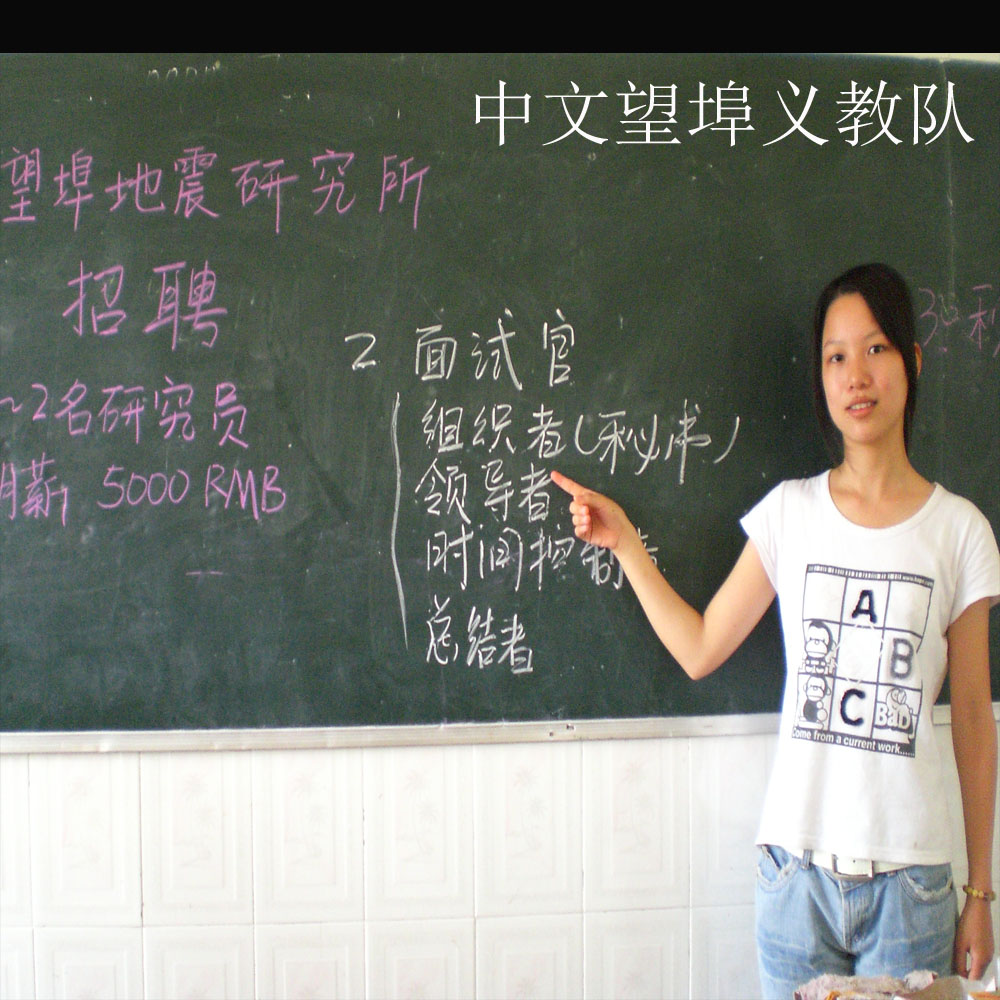 中文望埠义教队
望埠地震研究所
招聘
~2名研究员
月薪 5000 RMB
2 面试官
组织者(秘书)
领导者
时间控制者
总结者
3.
www.
A
B
C
BaD
Come from a current work......